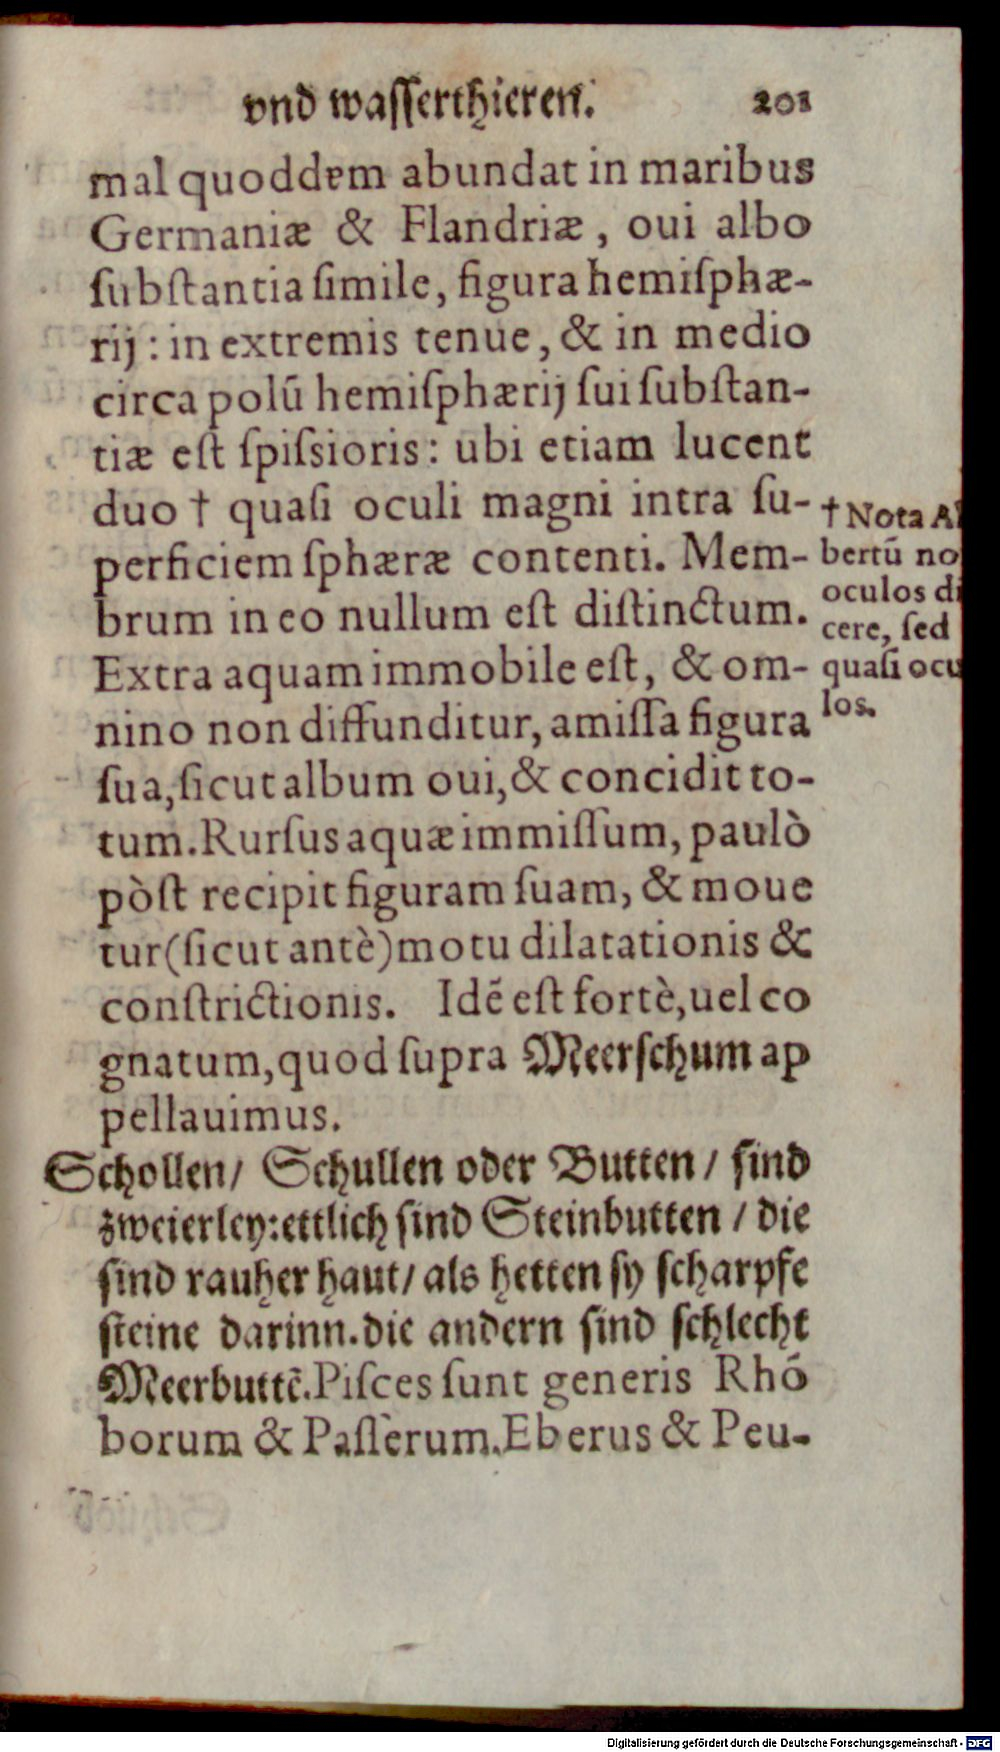 vnd wasserthieren. 201
mal quoddem abundat in maribus
Germaniæ & Flandriæ, oui albo
ſubſtantia ſimile, figura hemiſphæ-
rij: in extremis tenue, & in medio
circa polū hemiſphærij ſui ſubſtan-
tiæ eſt ſpiſsioris: ubi etiam lucent
duo † quaſi oculi magni intra ſu-
perficiem ſphæræ contenti. Mem-
brum in eo nullum eſt diſtinctum.
Extra aquam immobile eſt, & om-
nino non diffunditur, amiſſa figura
ſua, ſicut album oui, & concidit to-
tum. Rurſus aquæ immiſſum, paulò
pòſt recipit figuram ſuam, & moue
tur (ſicut antè) motu dilatationis &
conſtrictionis. Idē eſt fortè, uel co
gnatum, quod ſupra Meerſchum ap
pellauimus.
† Nota Al
bertū no
oculos di
cere, ſed
quaſi ocu
los.
Schollen/ Schullen oder Butten/ ſind
zweierley: ettlich ſind Steinbutten/ die
ſind rauher haut/ als hetten ſy ſcharpfe
ſteine darinn. die andern ſind ſchlecht
Meerbuttē. Piſces ſunt generis Rhō
borum & Paſſerum. Eberus & Peu-
Digitalisierung gefördert durch die Deutsche Forschungsgemeinschaft - DFG